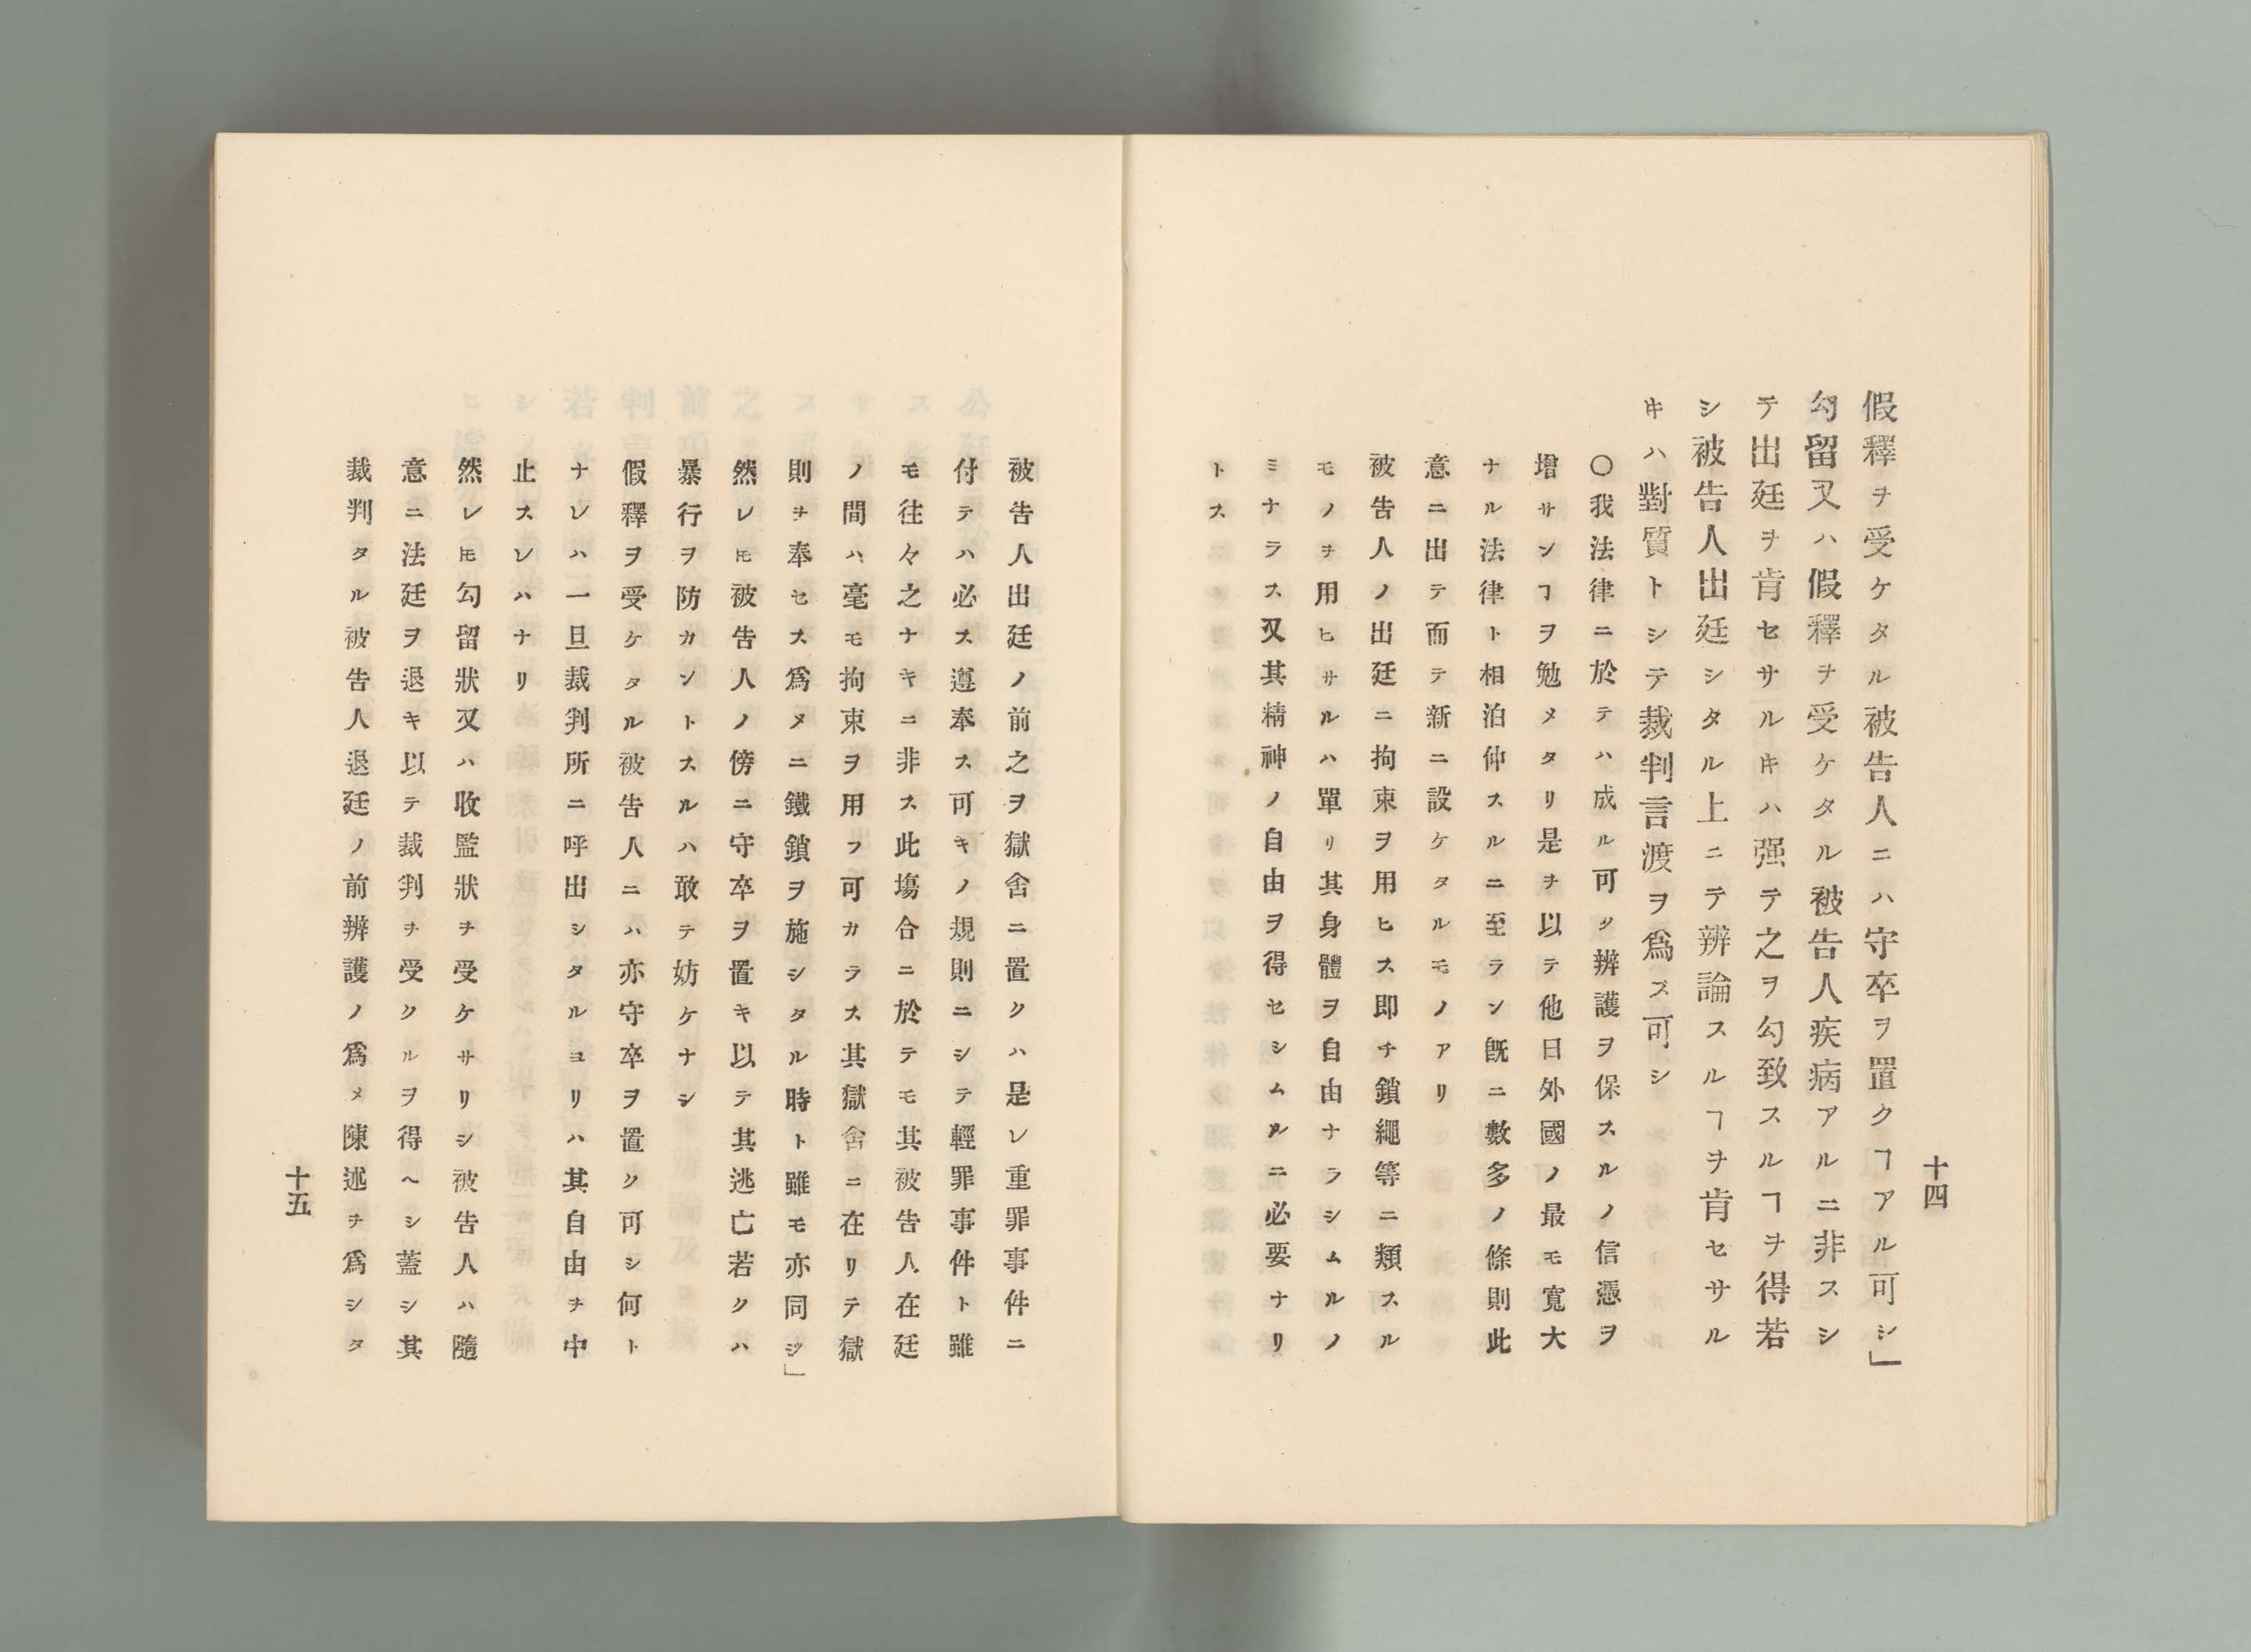 十四
假釋ヲ受ケタル被告人ニハ守卒ヲ置クヿアル可シ」
勾留又ハ假釋ヲ受ケタル被告人疾病アルニ非スシ
テ出廷ヲ肯セサルキハ强テ之ヲ勾致スルヿヲ得若
シ被告人出廷シタル上ニテ辨論スルヿヲ肯セサル
キハ對質トシテ裁判言渡ヲ爲ス可シ
〇我法律ニ於テハ成ル可ク辨護ヲ保スルノ信憑ヲ
增サンヿヲ勉メタリ是ヲ以テ他日外國ノ最モ寬大
ナル法律ト相泊仲スルニ至ラン旣ニ數多ノ條則此
意ニ出テ而テ新ニ設ケタルモノアリ
被告人ノ出廷ニ拘束ヲ用ヒス即チ鎖繩等ニ類スル
モノヲ用ヒサルハ單リ其身體ヲ自由ナラシムルノ
ミナラス又其精神ノ自由ヲ得セシムルニ必要ナリ
トス
被告人出廷ノ前之ヲ獄舍ニ置クハ是レ重罪事件ニ
付テハ必ス遵奉ス可キノ規則ニシテ輕罪事件ト雖
モ往々之ナキニ非ス此塲合ニ於テモ其被告人在廷
ノ間ハ毫モ拘束ヲ用フ可カラス其獄舍ニ在リテ獄
則ヲ奉セス爲メニ鐵鎖ヲ施シタル時ト雖モ亦同シ」
然レ𪜈被告人ノ傍ニ守卒ヲ置キ以テ其逃亡若クハ
暴行ヲ防カントスルハ敢テ妨ケナシ
假釋ヲ受ケタル被告人ニハ亦守卒ヲ置ク可シ何ト
ナレハ一旦裁判所ニ呼出シタルヨリハ其自由ヲ中
止スレハナリ
然レ𪜈勾留狀又ハ收監狀ヲ受ケサリシ被告人ハ隨
意ニ法廷ヲ退キ以テ裁判ヲ受クルヲ得ヘシ蓋シ其
裁判タル被告人退廷ノ前辨護ノ爲メ陳述ヲ爲シタ
十五